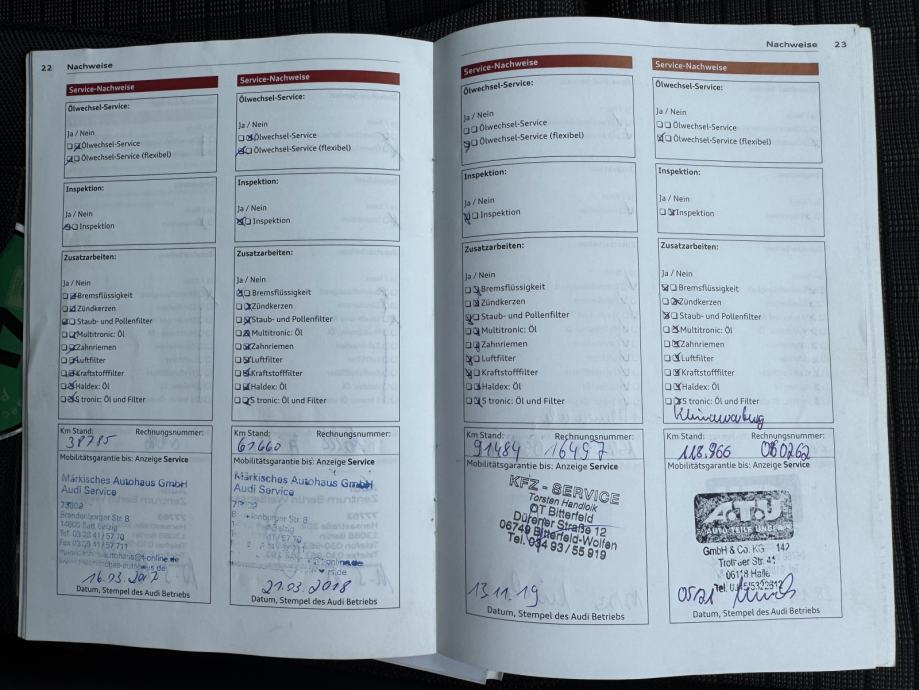 22 Nachweise
Service-Nachweise
Ölwechsel-Service:
Ja / Nein
Ölwechsel-Service
Ölwechsel-Service (flexibel)
Inspektion:
Ja / Nein
Inspektion
Zusatzarbeiten:
Ja / Nein
Bremsflüssigkeit
Zündkerzen
Staub- und Pollenfilter
Multitronic: Öl
Zahnriemen
Luftfilter
Kraftstofffilter
Haldex: Öl
S tronic: Öl und Filter
Km Stand: Rechnungsnummer:
Mobilitätsgarantie bis: Anzeige Service
Märkisches Autohaus GmbH
Audi Service
Brandenburger Str. 8
16.03.2017
Datum, Stempel des Audi Betriebs
Service-Nachweise
Ölwechsel-Service:
Ja / Nein
Ölwechsel-Service
Ölwechsel-Service (flexibel)
Inspektion:
Ja / Nein
Inspektion
Zusatzarbeiten:
Ja / Nein
Bremsflüssigkeit
Zündkerzen
Staub- und Pollenfilter
Multitronic: Öl
Zahnriemen
Luftfilter
Kraftstofffilter
Haldex: Öl
S tronic: Öl und Filter
Km Stand: Rechnungsnummer:
Mobilitätsgarantie bis: Anzeige Service
Märkisches Autohaus GmbH
Audi Service
21.03.2018
Datum, Stempel des Audi Betriebs
Nachweise 23
Service-Nachweise
Ölwechsel-Service:
Ja / Nein
Ölwechsel-Service
Ölwechsel-Service (flexibel)
Inspektion:
Ja / Nein
Inspektion
Zusatzarbeiten:
Ja / Nein
Bremsflüssigkeit
Zündkerzen
Staub- und Pollenfilter
Multitronic: Öl
Zahnriemen
Luftfilter
Kraftstofffilter
Haldex: Öl
S tronic: Öl und Filter
Km Stand: Rechnungsnummer:
91484 16497
Mobilitätsgarantie bis: Anzeige Service
KFZ - SERVICE
Torsten Handloik
OT Bitterfeld
Dürener Straße 12
06749 Bitterfeld-Wolfen
Tel. 034 93 / 55 919
13.11.19
Datum, Stempel des Audi Betriebs
Service-Nachweise
Ölwechsel-Service:
Ja / Nein
Ölwechsel-Service (flexibel)
Inspektion:
Ja / Nein
Inspektion
Zusatzarbeiten:
Ja / Nein
Bremsflüssigkeit
Zündkerzen
Staub- und Pollenfilter
Multitronic: Öl
Zahnriemen
Luftfilter
Kraftstofffilter
Haldex: Öl
S tronic: Öl und Filter
Klimawartung
Km Stand: Rechnungsnummer:
118.966 060262
Mobilitätsgarantie bis: Anzeige Service
A.T.U
GmbH & Co. KG 142
Trothaer Str. 41
06118 Halle
05/21
Datum, Stempel des Audi Betriebs